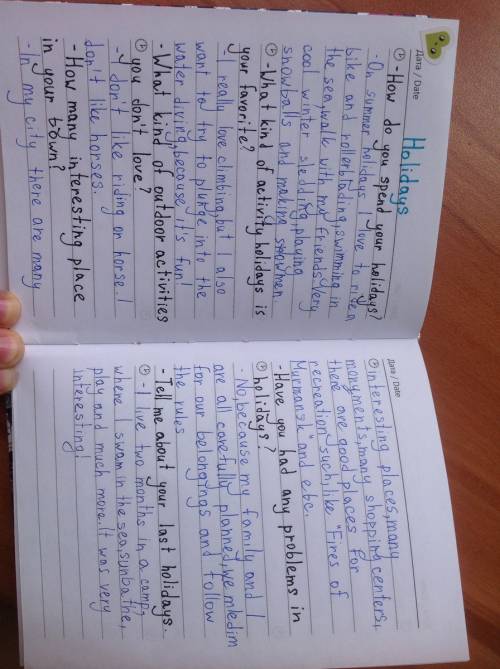 Дата / Date
Holidays
- How do you spend your holidays?
- On summer holidays I love to rive a
bike and rollerblading, swimming in
the sea, walk with my friends. Very
cool winter sledding, playing
snowballs and making snowmen
- What kind of activity holidays is
your favorite?
- I really love climbing, but I also
want to try to plunge into the
water diving, because it's fun!
- What kind of outdoor activities
you don't love?
- I don't like riding on horse. I
don't like horses.
- How many interesting place
in your town?
- In my city there are many
Дата / Date
interesting places, many
monyments, many shopping centers,
there are good places for
recreation such, like "Fires of
Murmansk" and etc.
- Have you had any problems in
holidays?
- No, because my family and I
are all carefully planned, we
for our belongings and follow
the rules
- Tell me about your last holidays.
- I live two months in a camp,
where I swam in the sea, sunbathe,
play and much more. It was very
interesting!